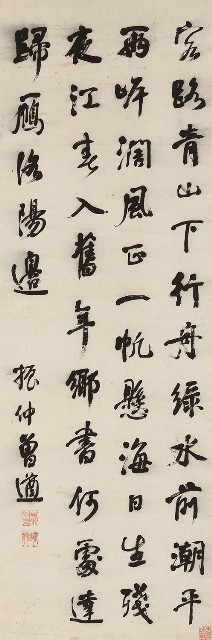 客路青山下行舟綠水前潮平
兩岸濶風正一帆懸海日生殘
夜江春入舊年鄉書何處達
歸鴈洛陽邊
振仲曾遒